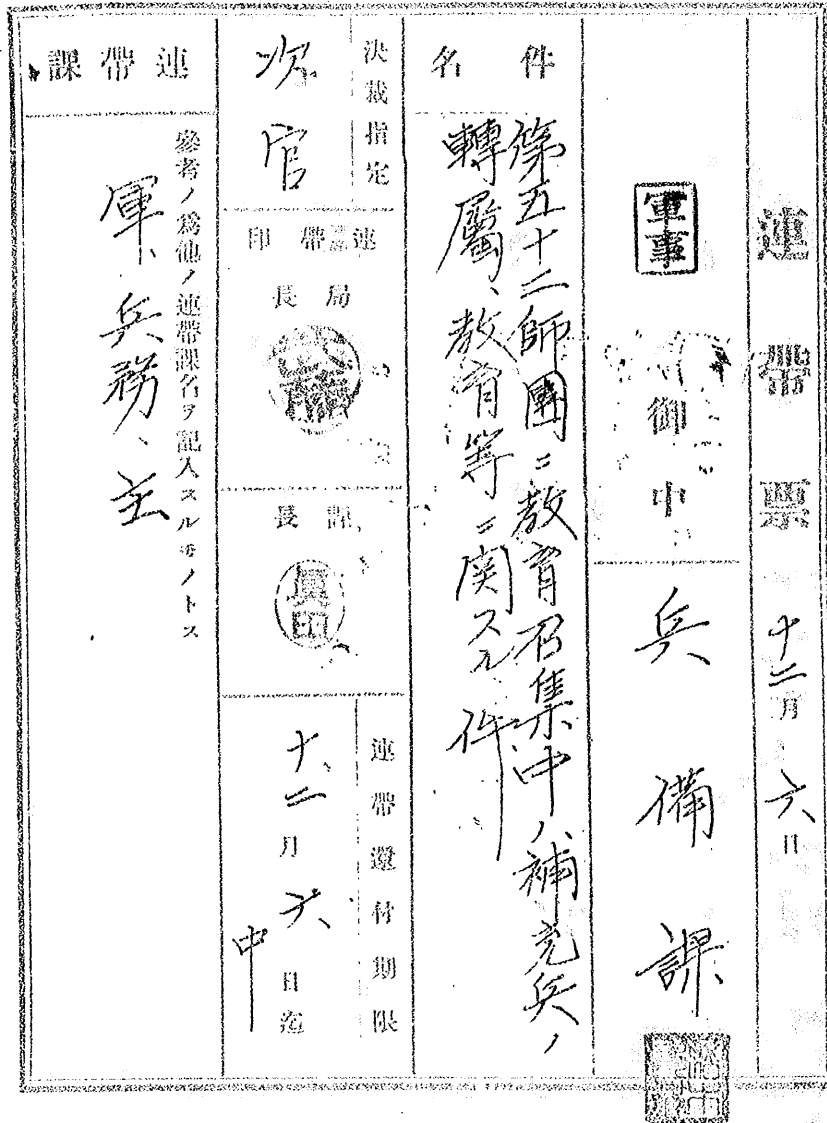 連帶票 十二月六日
軍事 御中 兵備課
件名
第五十二師團ニ教育召集中ノ補充兵ノ
轉屬、教育等ニ関スル件
決裁指定
次官
連帶印
局長
課長
連帶還付期限
十二月六日迄
中
連帶課
參考ノ爲他ノ連帶課名ヲ記入スルモノトス
軍、兵務、主